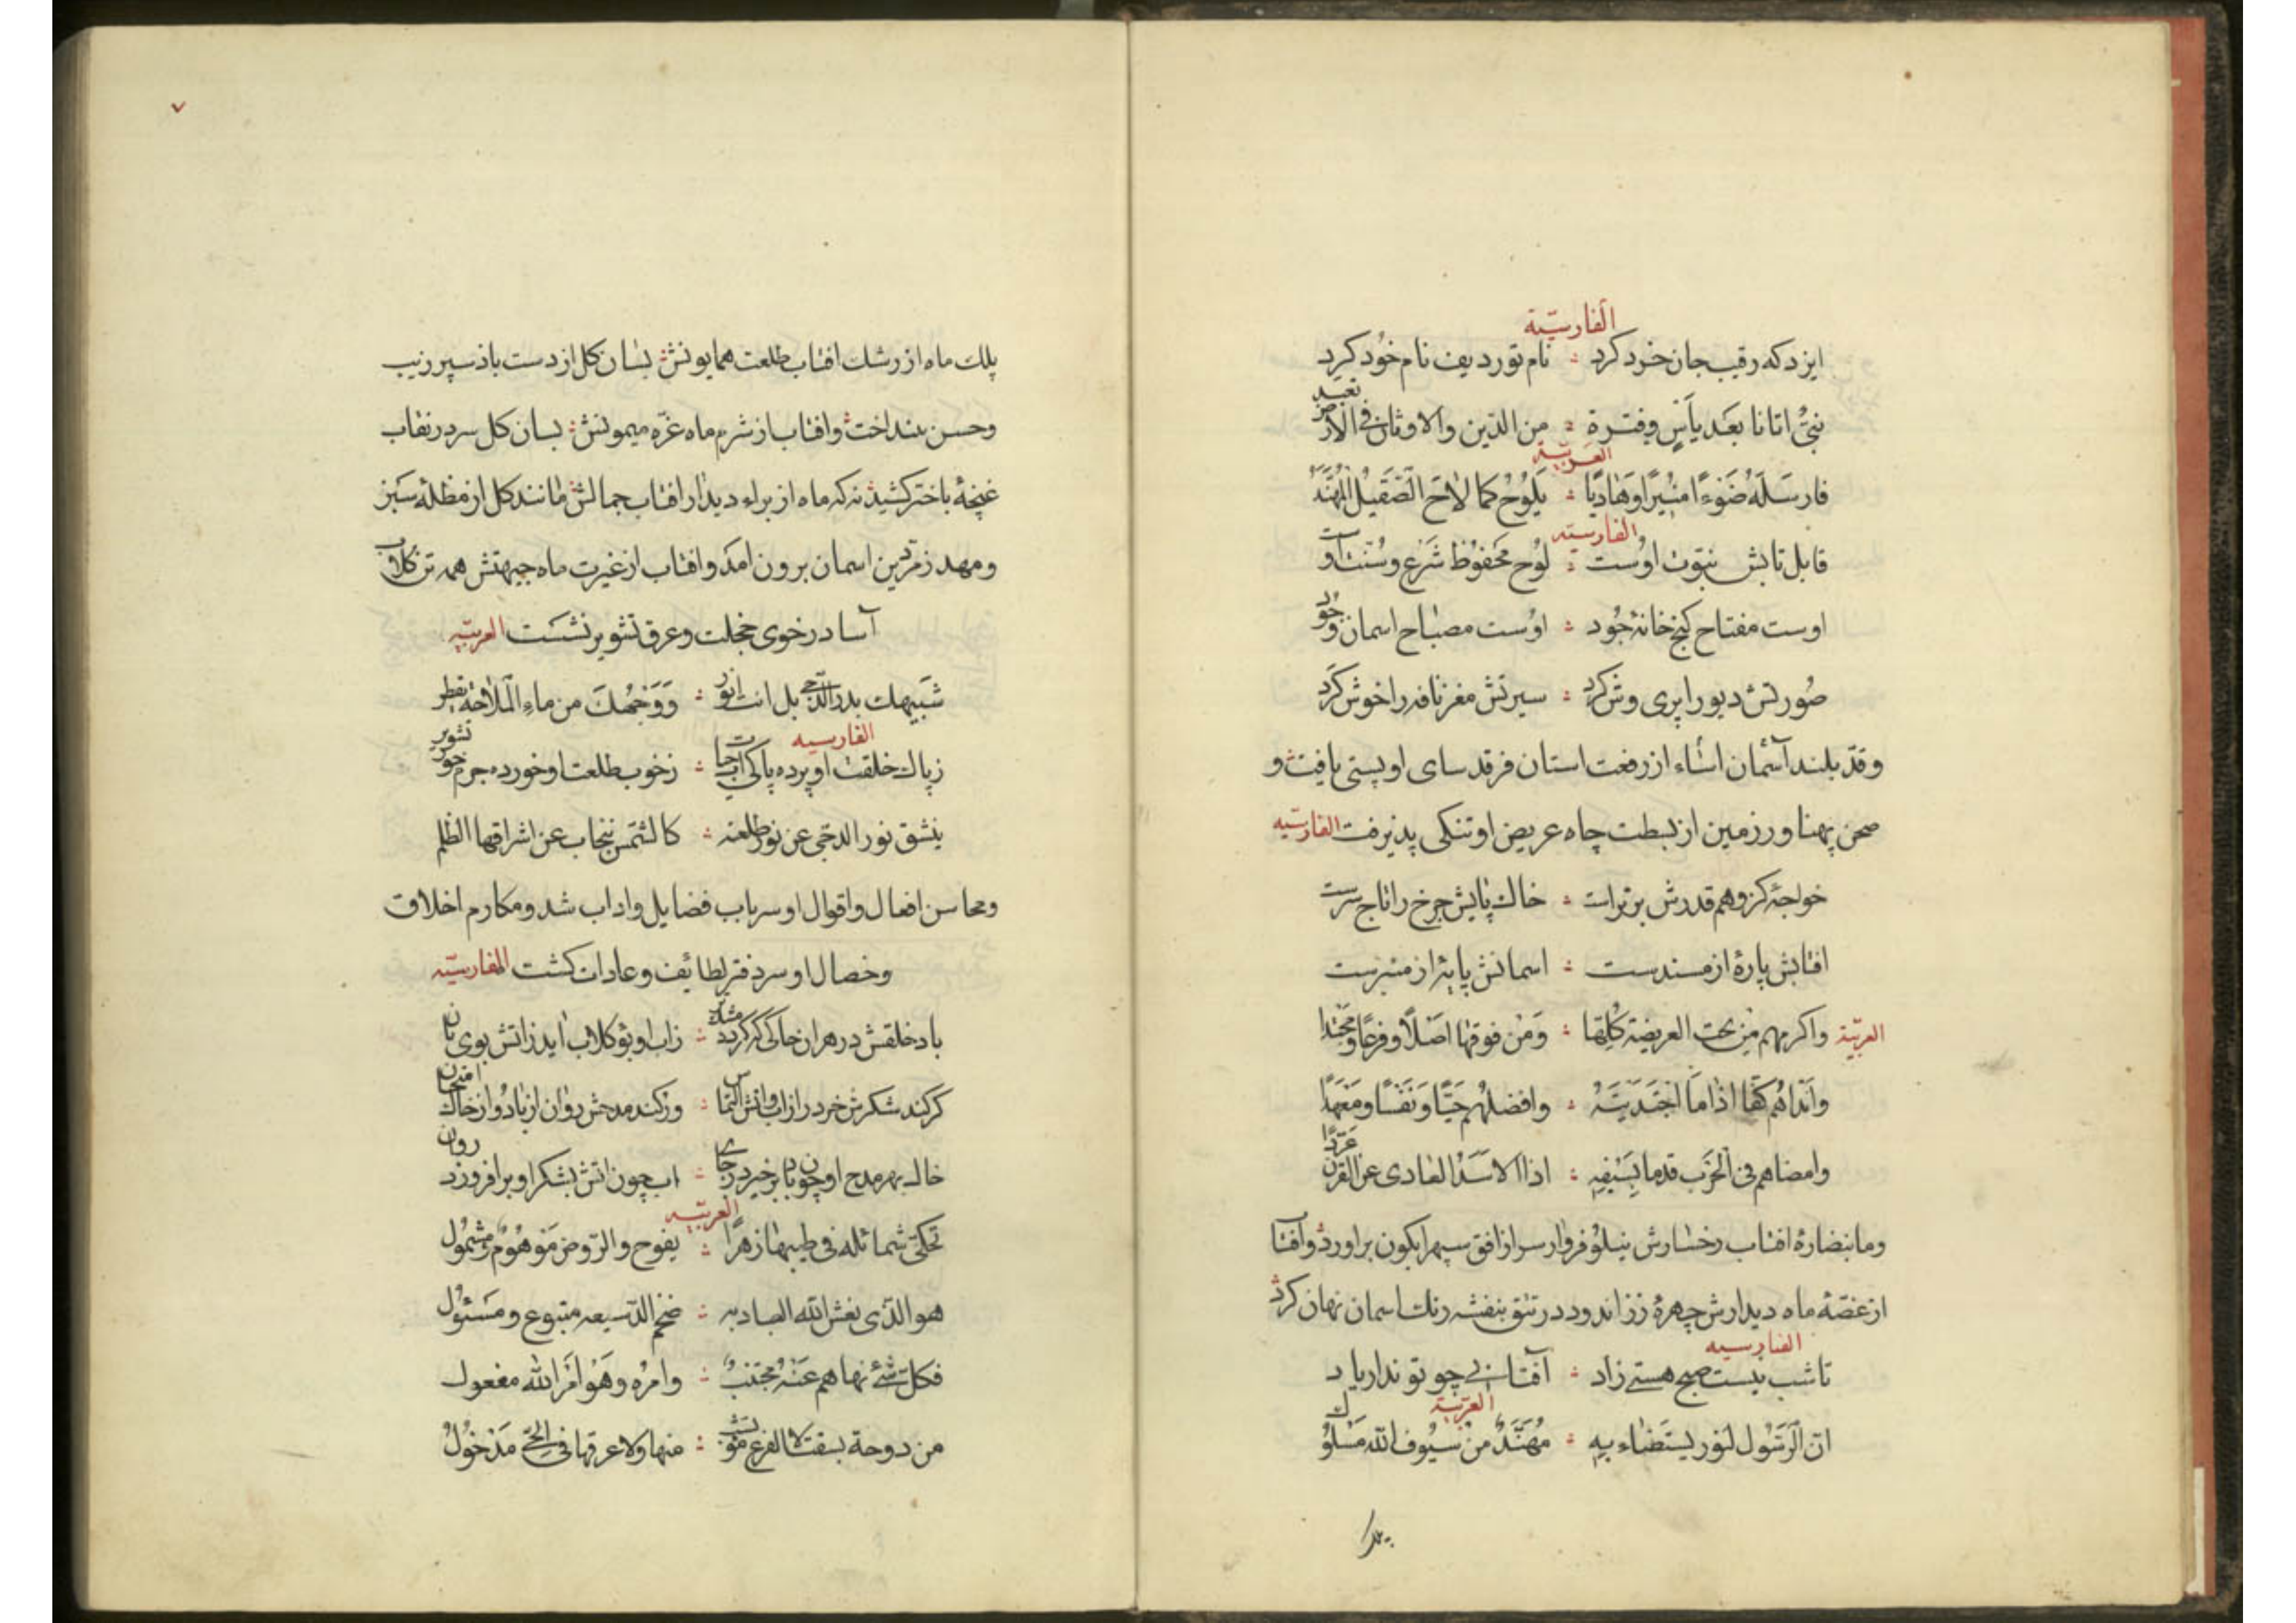 الفارسیّة
ایزد که رقیب جان خرد کرد ؞ نام تو ردیف نام خود کرد
نبیٌّ اتانا بعد یأسٍ وفترة ؞ من الدّین والاوثان فی الارض تعبد
العربیّة
فارسله ضوءًا منیرًا وهادیًا ؞ یلوح کما لاح الصّقیل المهنّد
الفارسیّه
قابل تابش نبوّت اوست ؞ لوح محفوظ شرع وسنّت اوست
اوست مفتاح کنج خانهٔ جود ؞ اوست مصباح اسمان وجود
صورتش دیو را پری وش کرد ؞ سیرتش مغز نافه را خوش کرد
وقدّ بلند آسمان اساء از رفعت استان فرقد سای او پستی یافت و
صحن پهناور زمین از بسطت جاه عریض او تنکی پذیرفت الفارسیّه
خواجهٔ کز وهم قدرش برترست ؞ خاك پایش چرخ را تاج سرست
افتابش پارهٔ از مسندست ؞ اسمانش پایهٔ از منبرست
العربیّة واکرمهم من تحت العریضة کلها ؞ ومن فوقها اصلًا وفرعًا ومحتدا
وانداهم کفّا اذا ما اجتدیته ؞ وافضلهم حیًّا ونفسًا ومعهدًا
وامضاهم فی الحرب قدما بسیفه ؞ اذا الاسد العادی عن القرن عرّدا
وما بنضارهٔ افتاب رخسارش نیلوفروار سر از افق سپهر ابکون براورد وافتاب
از غصّهٔ ماه دیدارش چهرهٔ زر اندود در تتق بنفشه رنك اسمان نهان کرد
الفارسیه
تا شب نیست صبح هستی زاد ؞ آفتابی چو تو ندارد یاد
العربیّة
انّ الرّسول لنور یستضاء به ؞ مهنّدٌ من سیوف اللّه مسلول
بلك
۷
بلك ماه از رشك افتاب طلعت همایونش بسان کل از دست باذ سپر زیب
وحسن بنداخت وافتاب از شرم ماه غرّه میمونش بسان کل سر در نقاب
غنچهٔ باختر کشید نه که ماه از براء دیدار افتاب جمالش مانند کل از مظلهٔ سبز
ومهد زمرّدین اسمان برون امد وافتاب از غیرت ماه جبهتش همه تن کلاب
آسا در خوی خجلت وعرق تشویر نشست العربیّه
شبیهك بدر الدّجی بل انت انور ؞ ووجهك من ماء الملاحة یقطر
الفارسیه
ز پاك خلقت او برده پاکی اب حیات ؞ ز خوب طلعت او خورده جرم خور تشویر
ینشق نور الدجی عن نور طلعته ؞ کالشمس ینجاب عن اشراقها الظلم
ومحاسن افعال واقوال او سر باب فضایل واداب شد ومکارم اخلاق
وخصال او سر دفتر لطایف وعادات کشت الفارسیّه
باد خلقش در هران خاکی که کرد مشك ؞ زاب او بوکلاب اید زاتش بوی بان
کر کند شکرش خرد را زاب واتش التماس ؞ ور کند مدحش روان از باد واز خاك امتحان
خاك بهر مدح او چون باد برخیزد ز جای ؞ اب چون اتش بشکر او برافروزد روان
العربیّه
تحکی شمائله فی طیبها زهرًا ؞ یفوح والرّوض موهوم ومشمول
هو الذی نعش اللّه العباد به ؞ ضخم الدّسیعه متبوع ومسئول
فکلّ شئ نهاهم عنه مجتنبٌ ؞ وامره وهو امر اللّه مفعول
من دوحة بسقت لا الفرع مؤتشب ؞ منها ولا عرقها فی الحیّ مدخولٌ